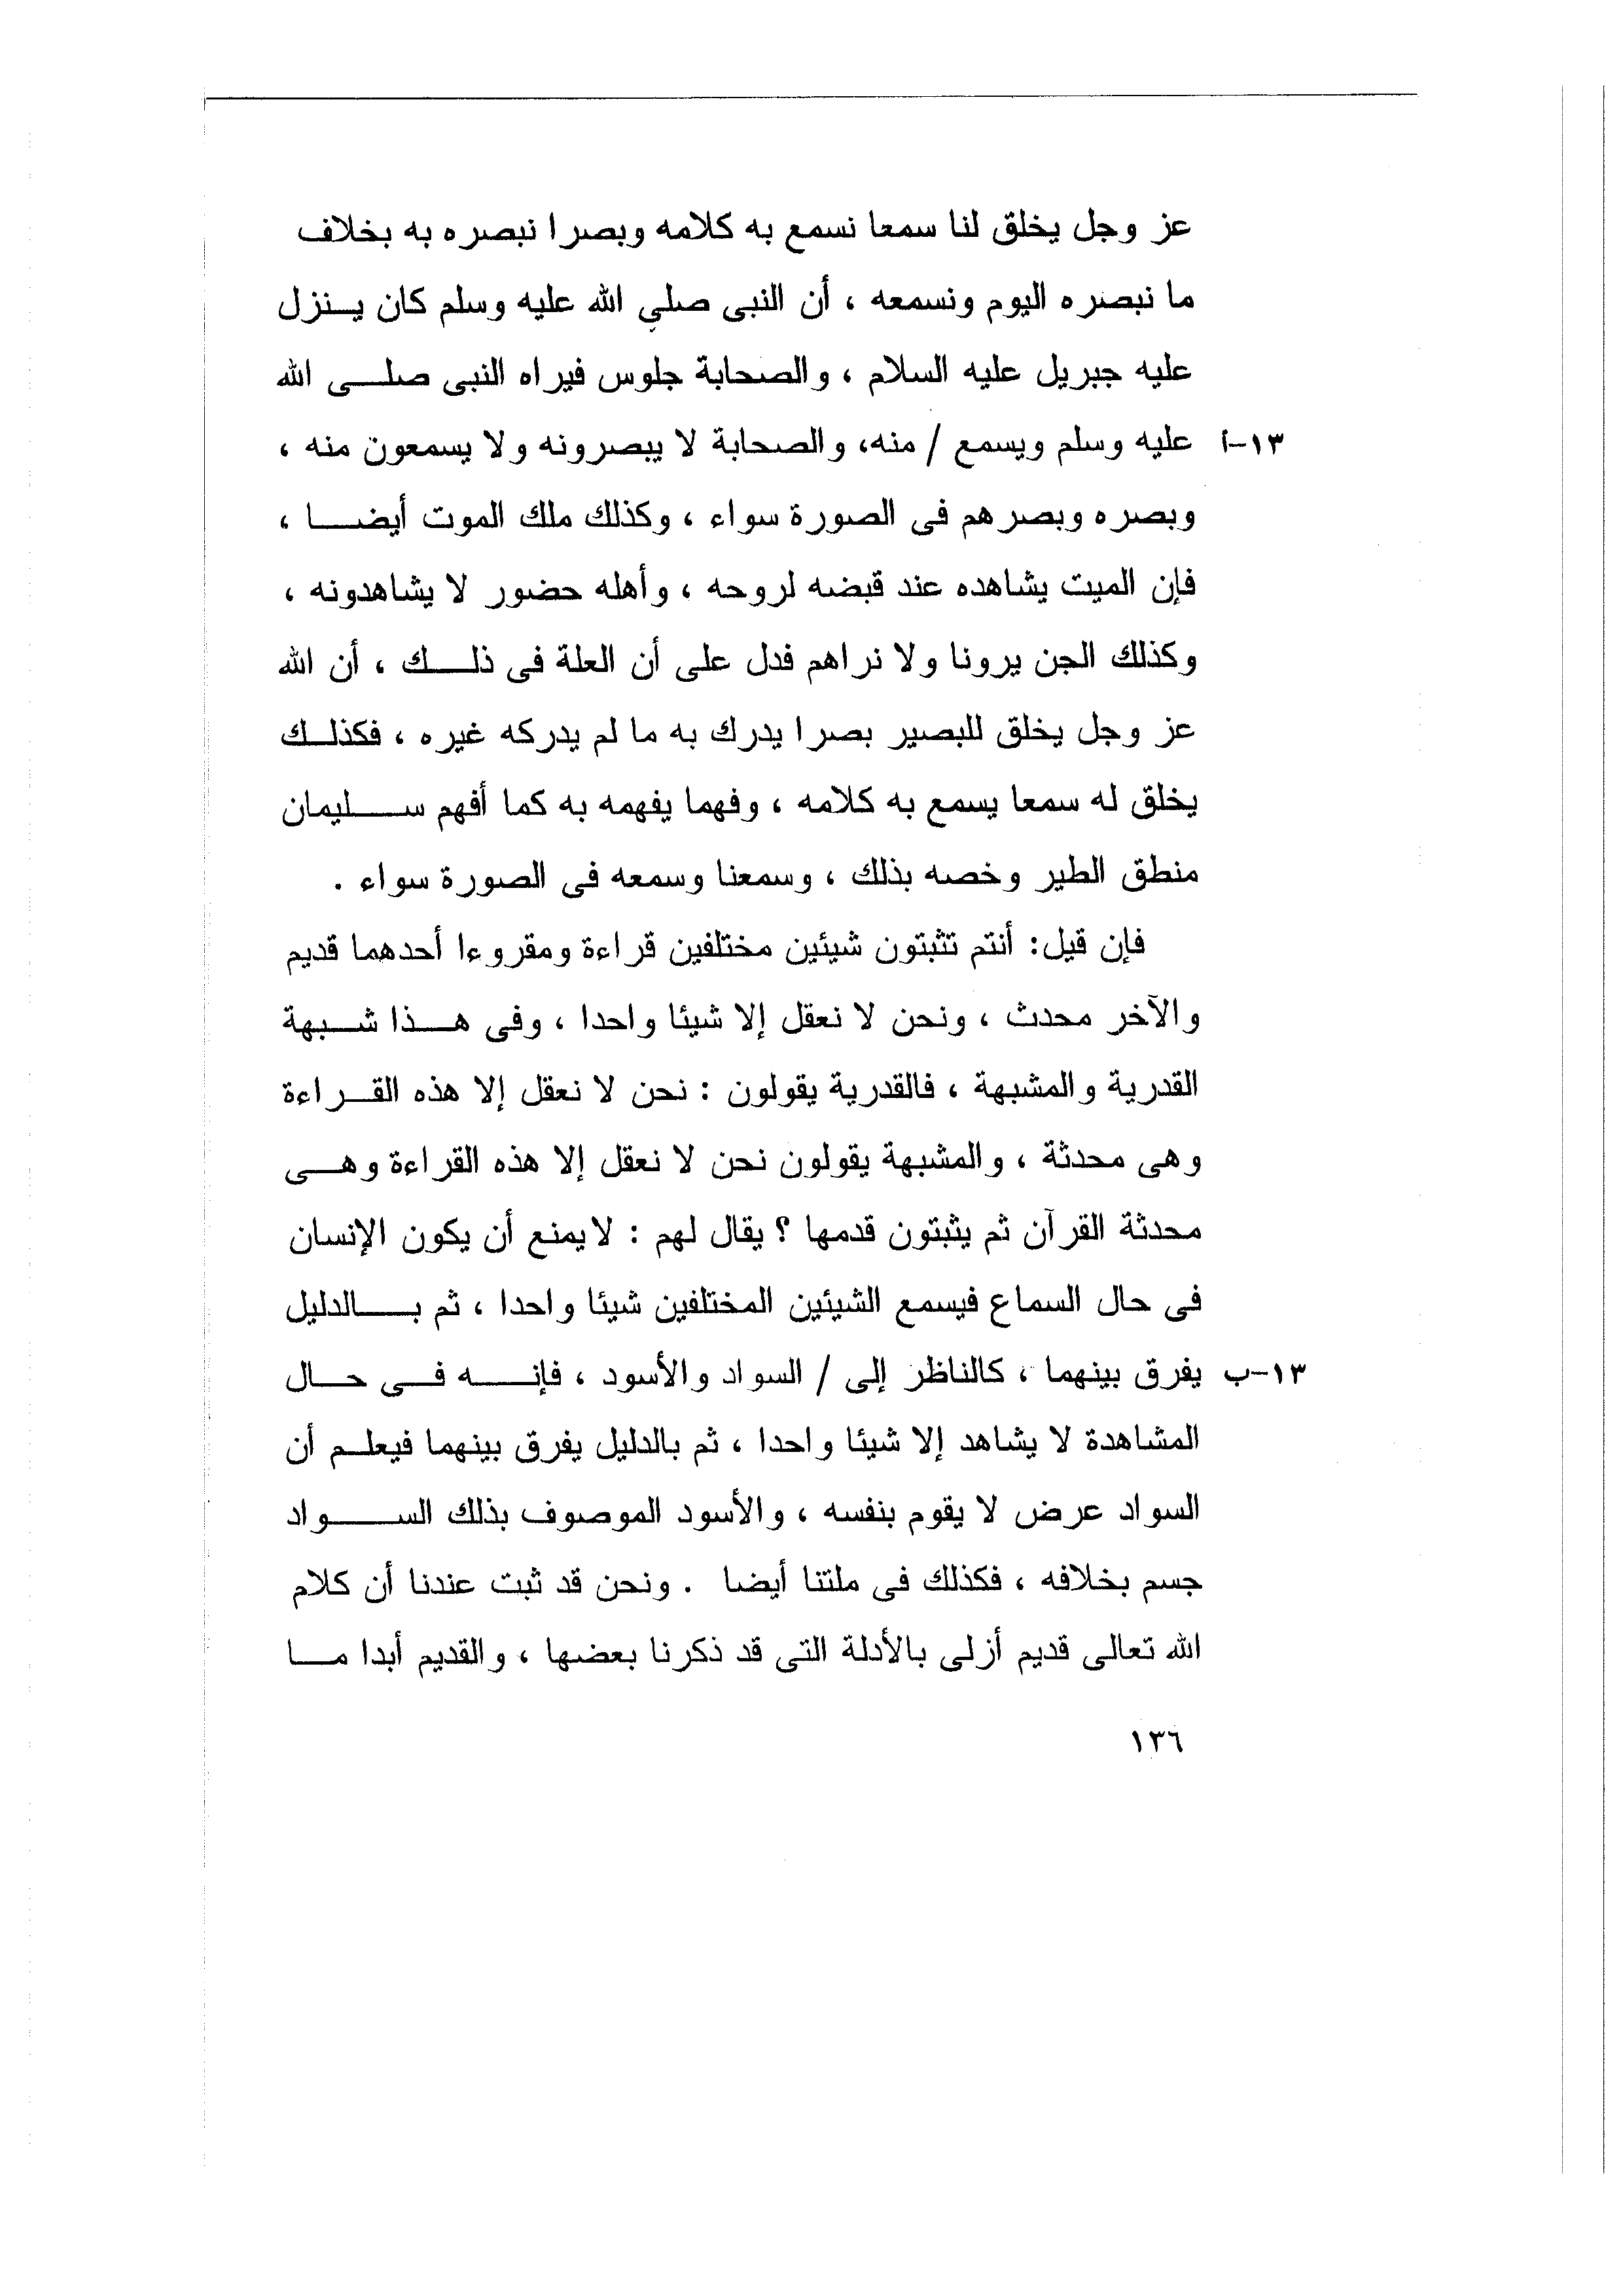 عز وجل يخلق لنا سمعا نسمع به كلامه وبصرا نبصره به بخلاف
ما نبصره اليوم ونسمعه ، أن النبى صلي الله عليه وسلم كان ينزل
عليه جبريل عليه السلام ، والصحابة جلوس فيراه النبى صلى الله
١٣-أ عليه وسلم ويسمع / منه، والصحابة لا يبصرونه ولا يسمعون منه ،
وبصره وبصرهم فى الصورة سواء ، وكذلك ملك الموت أيضا ،
فإن الميت يشاهده عند قبضه لروحه ، وأهله حضور لا يشاهدونه ،
وكذلك الجن يرونا ولا نراهم فدل على أن العلة فى ذلك ، أن الله
عز وجل يخلق للبصير بصرا يدرك به ما لم يدركه غيره ، فكذلك
يخلق له سمعا يسمع به كلامه ، وفهما يفهمه به كما أفهم سليمان
منطق الطير وخصه بذلك ، وسمعنا وسمعه فى الصورة سواء .
فإن قيل: أنتم تثبتون شيئين مختلفين قراءة ومقروءا أحدهما قديم
والآخر محدث ، ونحن لا نعقل إلا شيئا واحدا ، وفى هذا شبهة
القدرية والمشبهة ، فالقدرية يقولون : نحن لا نعقل إلا هذه القراءة
وهى محدثة ، والمشبهة يقولون نحن لا نعقل إلا هذه القراءة وهى
محدثة القرآن ثم يثبتون قدمها ؟ يقال لهم : لا يمنع أن يكون الإنسان
فى حال السماع فيسمع الشيئين المختلفين شيئا واحدا ، ثم بالدليل
١٣-ب يفرق بينهما ، كالناظر إلى / السواد والأسود ، فإنه فى حال
المشاهدة لا يشاهد إلا شيئا واحدا ، ثم بالدليل يفرق بينهما فيعلم أن
السواد عرض لا يقوم بنفسه ، والأسود الموصوف بذلك السواد
جسم بخلافه ، فكذلك فى ملتنا أيضا . ونحن قد ثبت عندنا أن كلام
الله تعالى قديم أزلى بالأدلة التى قد ذكرنا بعضها ، والقديم أبدا ما
١٣٦